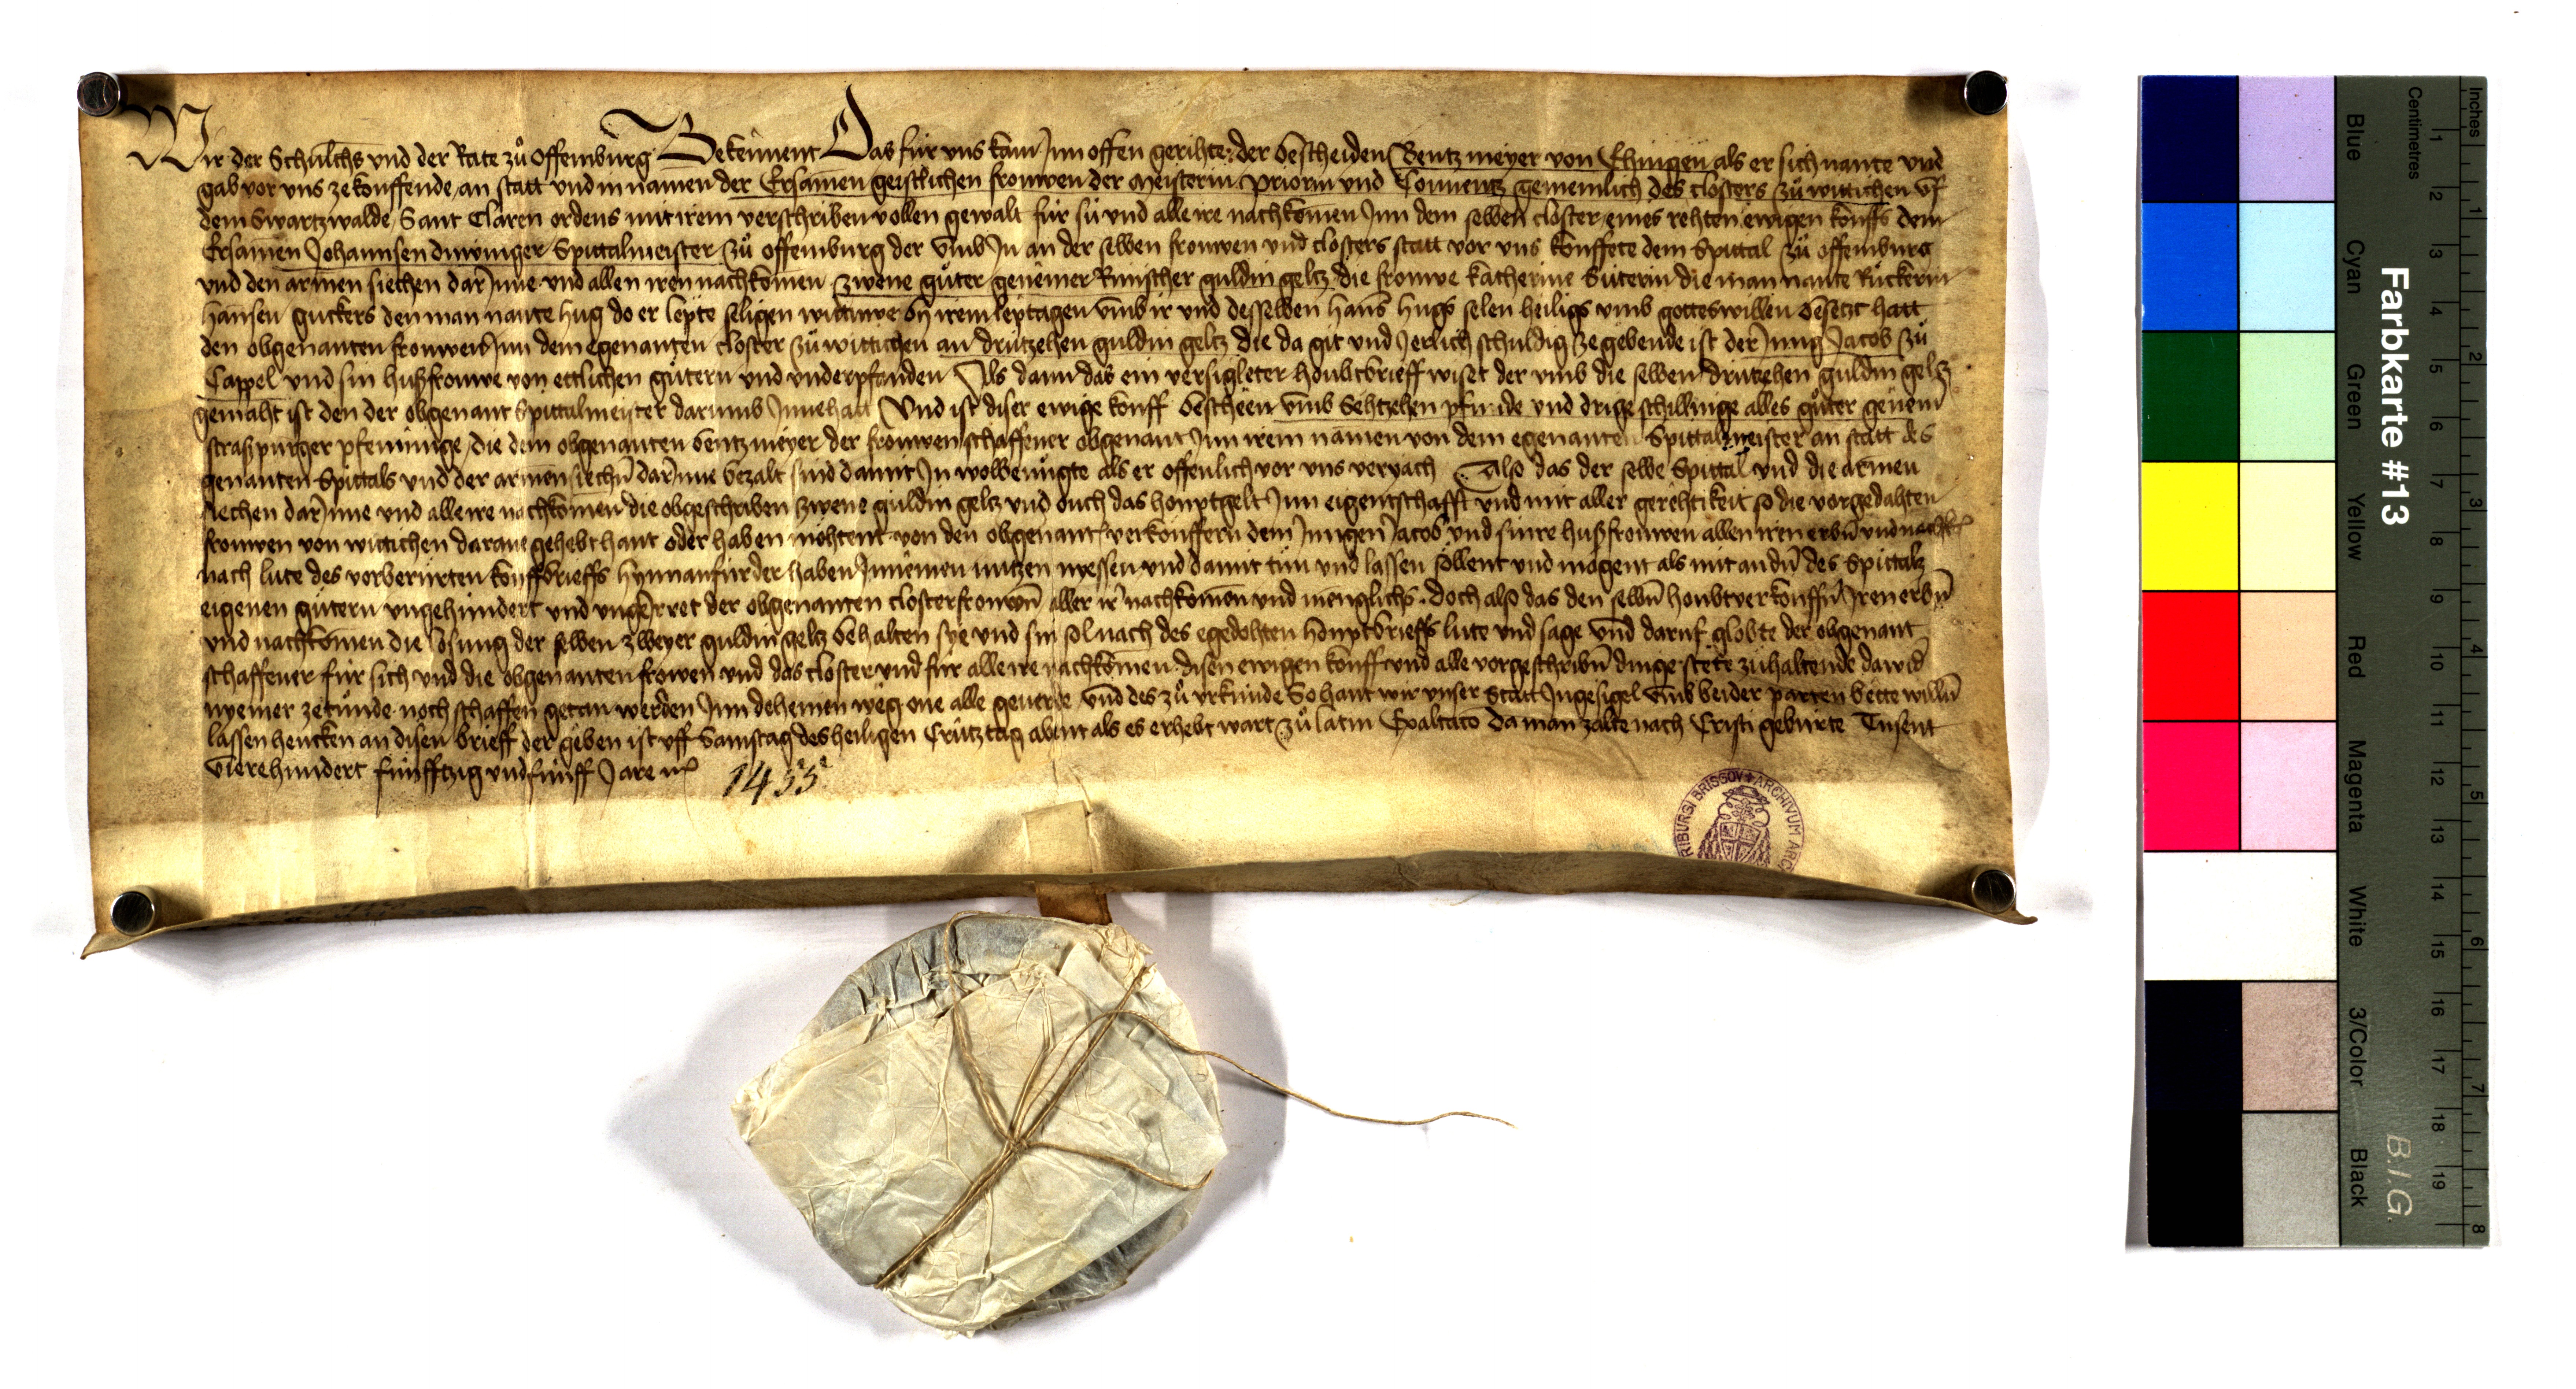 Wir der Schulths vnd der Rate zů Offemburg Bekennent Das fúr vns kam Jnn offen gerihte der bescheiden Bentz meyer von Ehingen als er sich nante vnd
gab vor vns ze kouffende an statt vnd in namen der Ersamen geistlichen frouwen der meisterin priorin vnd Conuentz gemeinlich des closters zů wittichen vf
dem Swartzwalde Sant Claren ordens mit irem verschriben vollen gewalt fúr sú vnd alle ire nachkomen Jnn dem selben closter eines rehten ewigen kouffs dem
Ersamen Johannsen Spittalmeister zů offemburg der vmb Jn an der selben frouwen vnd closters statt vor vns kouffete dem Spittal zů offemburg
vnd den armen siechen dar Jnne vnd allen iren nachkomen zwene gůter genemer Rinscher guldin geltz die frouwe katherine Suterin die man nante Rúckerin
hansen guckers den man nante hug do er lepte seligen wittuwe by irem leptagen vmb ir vnd desselben hans hugs selen heiligs vmb gottes willen besetzt hatt
den obgenanten frouwen Jnn dem egenanten closter zů wittichen an drútzehen guldin geltz die da git vnd Jerlich schuldig ze gebende ist der Jung Jacob zů
Cappel vnd sin hußfrouwe von ettlichen gútern vnd vnderpfanden Als dann das ein versigleter houbtbrieff wiset der vmb die selben drutzehen guldin geltz
gemaht ist den der obgenant Spittalmeister darumb Jnnehatt Vnd ist diser ewige kouff bescheen vmb Sehtzehen pfunde vnd drige schillinge alles gůter genem
straßpurger pfenninge die dem obgenanten bentz meyer der frouwen schaffener obgenant Jnn irem namen von dem egenanten Spittalmeister an statt des
genanten Spittals vnd der armen siechn dar Jnne bezalt sind damit Jn wolbenúgte als er offenlich vor vns veryach Also das der selbe Spittal vnd die armen
siechen dar Jnne vnd alle ire nachkomen die obgeschriben zwene guldin geltz vnd ouch das houptgelt Jnn eigentschafft vnd mit aller gerehtikeit so die vorgedahten
frouwen von wittichen darane gehebt hant oder haben möhtent von den obgenant verkouffern dem Jungen Jacob vnd sinre hußfrouwen allen iren erbn vnd nachk
nach lute des vorberúrten kouffbrieffs hynnanfúrder haben Jnnemen nutzen niessen vnd damit tůn vnd lassen söllent vnd mögent als mit andn des Spittalz
eigenen gútern vngehindert vnd vngeirret der obgenanten closterfrouwn aller ir nachkomen vnd menglichs doch also das den selbn houbtverkouffn Jren erbn
vnd nachkomen die losung der selben zweyer guldin geltz behalten sye vnd sin sol nach des egedohten houptbrieffs lute vnd sage vnd daruf globte der obgenant
schaffener fúr sich vnd die obgenanten frowen vnd das closter vnd fúr alle ire nachkomen disen ewigen kouff vnd alle vorgeschribn dinge stete zuhaltende dawid
nyemer zetůnde noch schaffen getan werden Jnn deheinen weg one alle geuerde vnd des zů vrkunde So hant wir vnser Statt Jngesigel vmb beider parten bette willn
lassen hencken an disen brieff der geben ist vff Samstag des heiligen Crútztag abent als es erhebt wart zů latin Exaltatio da man zalte nach Cristi geburte Tusent
vierehundert fúnfftzig vnd fúnff Jare
1455
RIBURGI BRISGOV + ARCHIVUM ARC
Farbkarte #13
B.I.G.
Inches 1 2 3 4 5 6 7 8
Centimetres 1 2 3 4 5 6 7 8 9 10 11 12 13 14 15 16 17 18 19
Blue Cyan Green Yellow Red Magenta White 3/Color Black